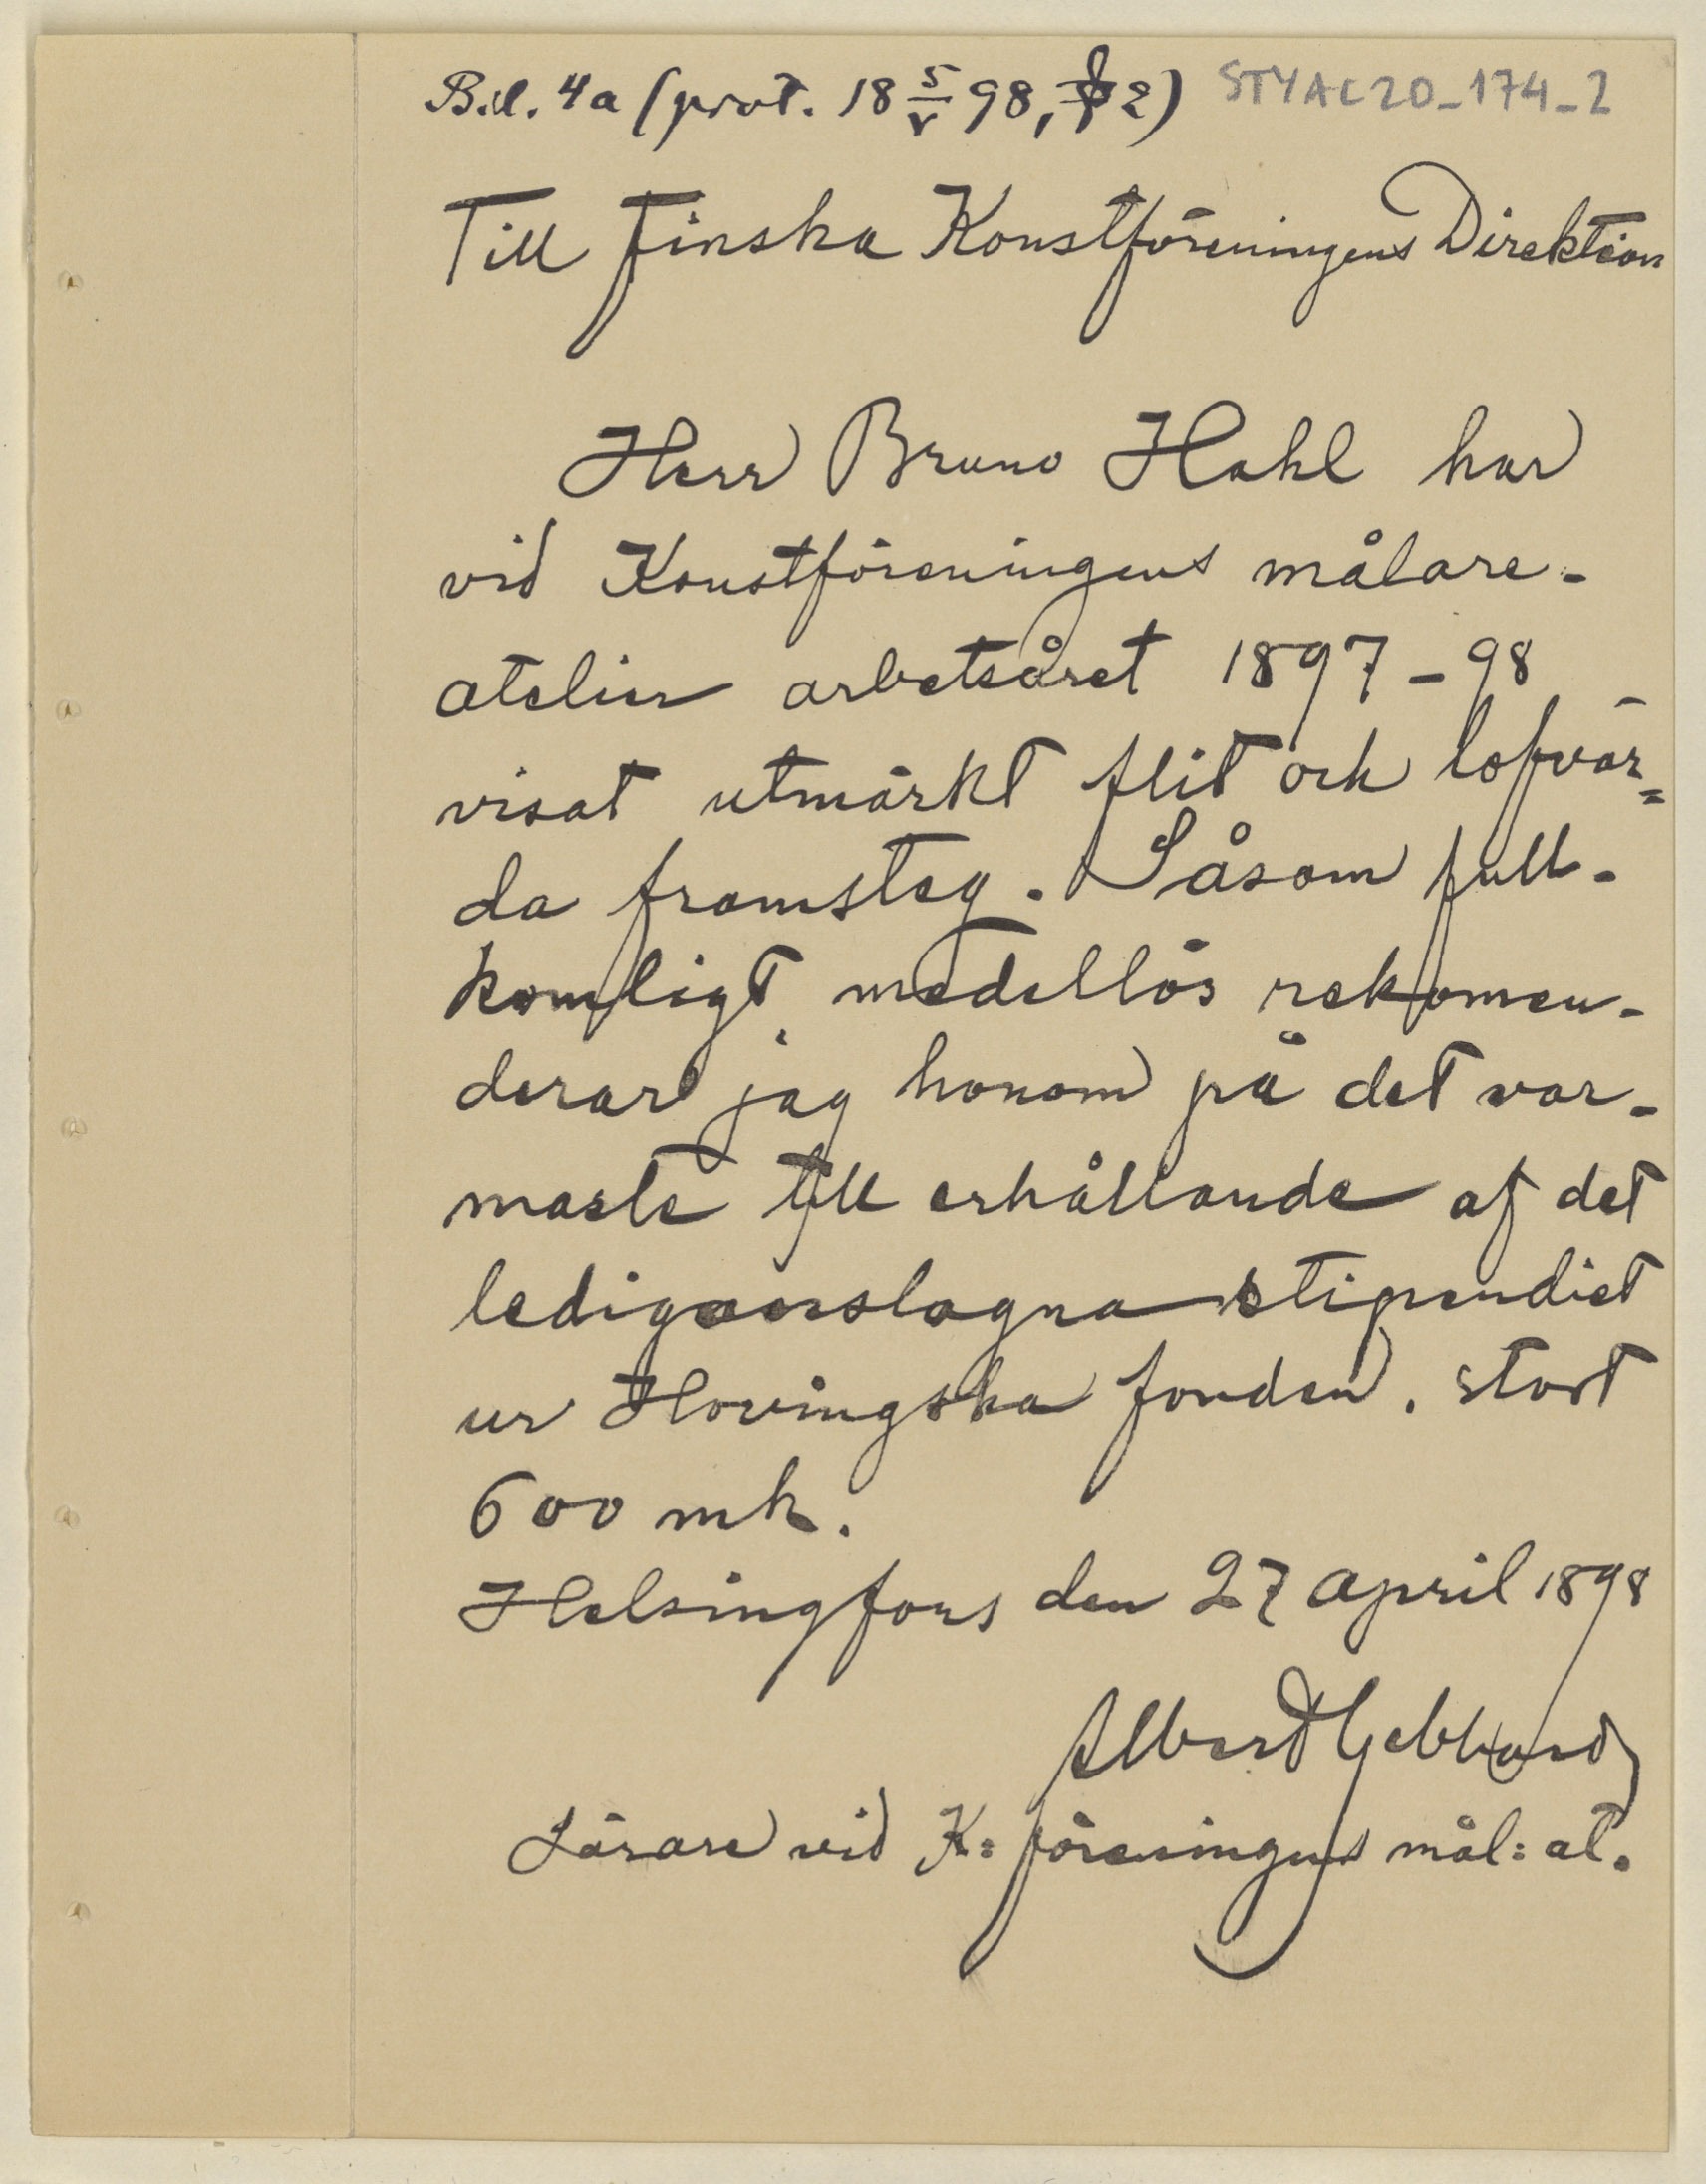 Bil. 4a (prot. 18 5/V 98, § 2) STYAC20_174_2
Till Finska Konstföreningens Direktion
Herr Bruno Hahl har
vid Konstföreningens målare-
atelier arbetsåret 1897-98
visat utmärkt flit och lofvär=
da framsteg. Såsom full-
komligt medellös rekomen-
derar jag honom på det var-
maste till erhållande af det
lediganslagna stipendiet
ur Hovingska fonden, stort
600 mk.
Helsingfors den 27 april 1898
Albert Gebhard
Lärare vid K: föreningens mål: at.